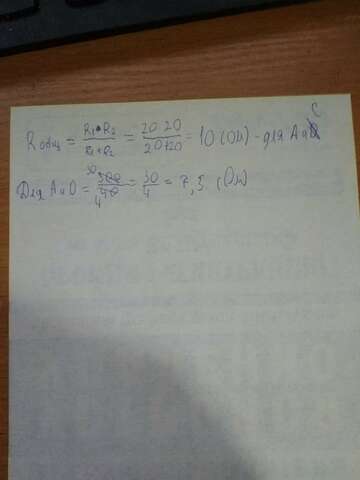 R общ = R1•R2/R1+R2 = 20·20/20+20 = 10 (Ом) - для А и C
Для А и D = 300/40 = 30/4 = 7,5 (Ом)